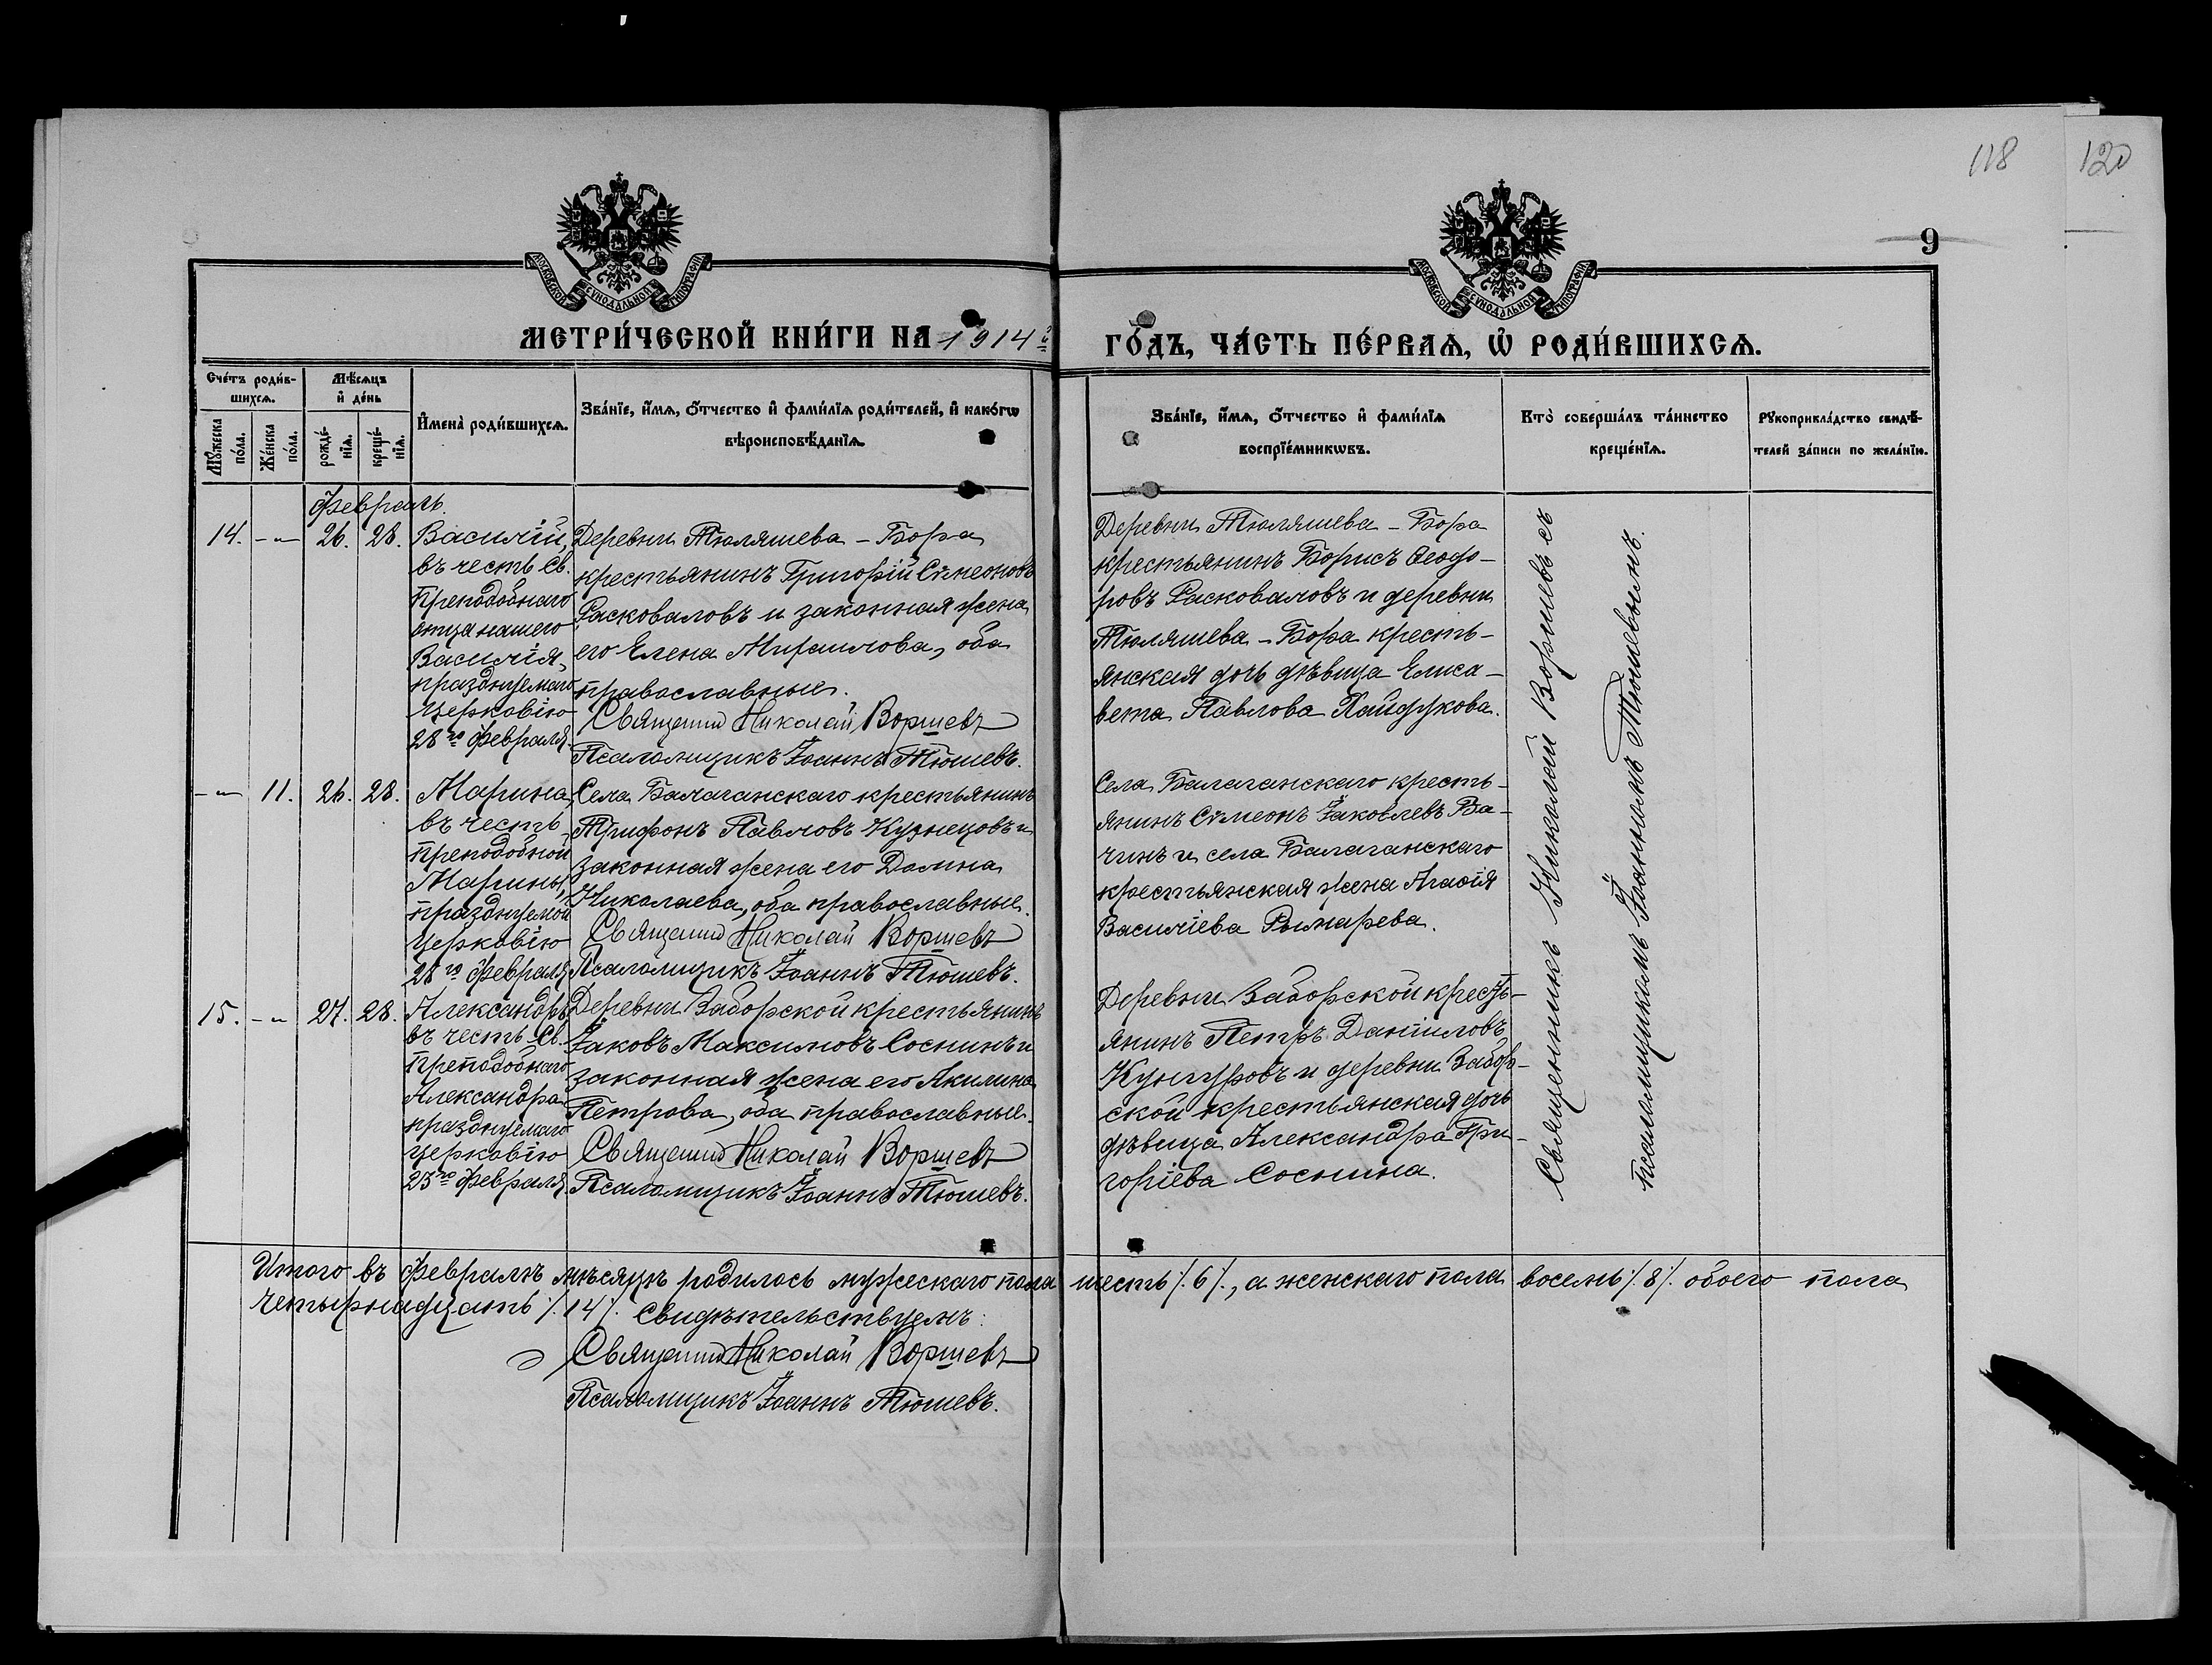 118
120
9
МОСКОВСКОЙ СѴНОДАЛЬНОЙ ТИПОГРАФІИ
МОСКОВСКОЙ СѴНОДАЛЬНОЙ ТИПОГРАФІИ
МЕТРИ́ЧЕСКОЙ КНИ́ГИ НА 1914 й
ГО́ДЪ, ЧА́СТЬ ПЕ́РВАѦ, Ѡ҆ РОДИ́ВШИХСѦ.
Сче́тъ роди́в-
шихсѧ.
Мѣ́сѧцъ
и҆ де́нь
Мꙋ́жеска
по́ла.
Же́нска
по́ла.
рожде́-
нїѧ.
креще́-
нїѧ.
И҆мена̀ роди́вшихсѧ.
Зва́нїе, и҆́мѧ, ѻ҆́тчество и҆ фами́лїѧ роди́телей, и҆ како́гѡ
вѣроисповѣ́данїѧ.
Зва́нїе, и҆́мѧ, ѻ҆́тчество и҆ фами́лїѧ
воспрїе́мникѡвъ.
Кто̀ соверша́лъ та́инство
креще́нїѧ.
Рꙋкоприкла́дство свидѣ́-
телей за́писи по жела́нїю.
Февраль.
14. -"- 26. 28.
Василій,
въ честь Св.
Преподобнаго
отца нашего
Василія,
празднуемаго
Церковію
28го Февраля.
Деревни Тюляшева - Бора
крестьянинъ Григорій Сѵмеоновъ
Расковаловъ и законная жена
его Елена Мираилова, оба
православные.
Священник Николай Воршевъ
Псаломщикъ Іоаннъ Тюшевъ.
Деревни Тюляшева - Бора
крестьянинъ Борисъ Ѳеодо-
ровъ Расковаловъ и деревни
Тюляшева - Бора кресть-
янская дочь дѣвица Елиса-
вета Павлова Пайдукова.
-"- 11. 26. 28.
Марина,
въ честь
Преподобной
Марины,
празднуемой
Церковію
28го Февраля
Села Балаганскаго крестьянинъ
Трифонъ Павловъ Кузнецовъ и
законная жена его Домна
Николаева, оба православные.
Священник Николай Воршевъ
Псаломщикъ Іоаннъ Тюшевъ.
Села Балаганскаго кресть-
янинъ Сѵмеонъ Іаковлевъ Ва-
чинъ и села Балаганскаго
крестьянская жена Агаѳія
Василіева Рымарева.
15. -"- 27. 28.
Александръ,
въ честь Св.
Преподобнаго
Александра
празднуемаго
Церковію
23го Февраля.
Деревни Заборской крестьянинъ
Іаковъ Максимовъ Соснинъ и
законная жена его Акилина
Петрова, оба православные.
Священник Николай Воршевъ
Псаломщикъ Іоаннъ Тюшевъ.
Деревни Заборской кресть-
янинъ Петръ Даніиловъ
Кунгуровъ и деревни Забор-
ской крестьянская дочь
дѣвица Александра Гри-
горіева Соснина.
Священникъ Николай Воршевъ съ
Псаломщикомъ Іоанномъ Тюшевымъ.
Итого въ Февралѣ мѣсяцѣ родилось мужескаго пола шесть ⁒ 6 ⁒, а женскаго пола восемь ⁒ 8 ⁒ обоего пола
четырнадцать ⁒ 14 ⁒. Свидѣтельствуемъ:
Священник Николай Воршевъ
Псаломщикъ Іоаннъ Тюшевъ.